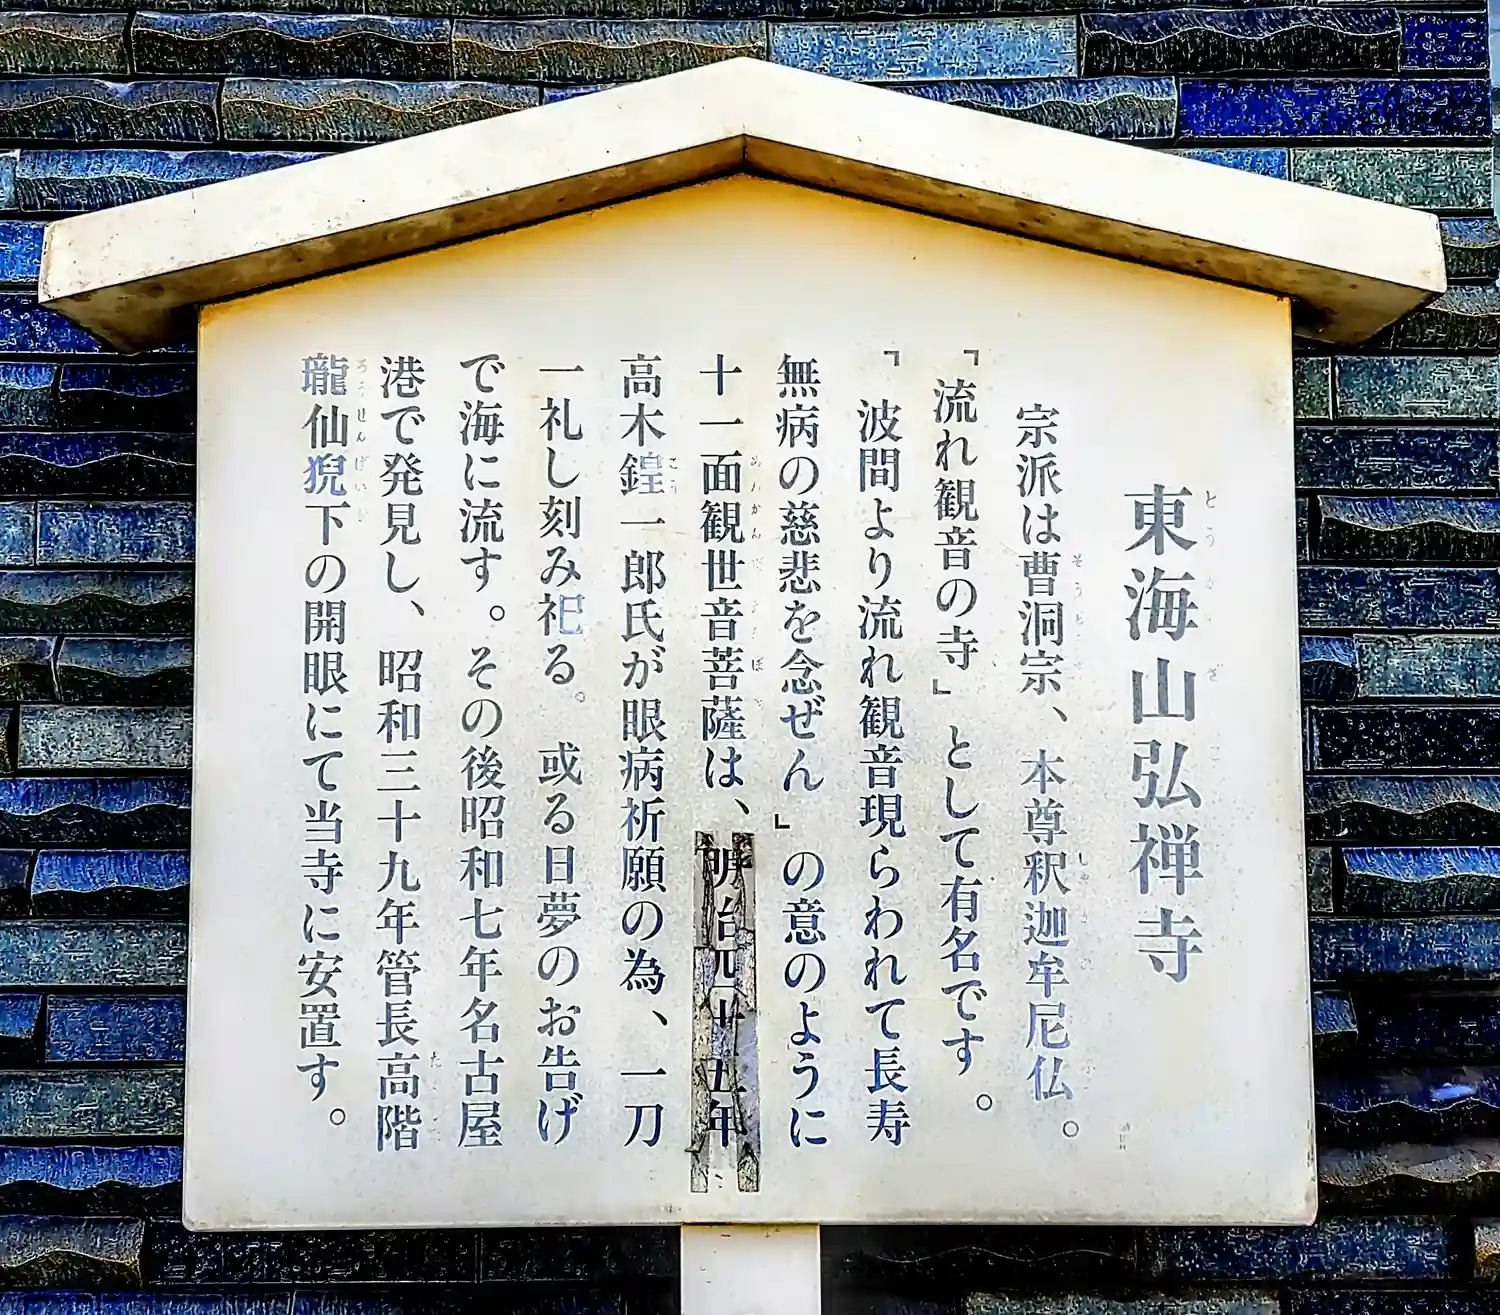 東海山弘禅寺
宗派は曹洞宗、本尊釈迦牟尼仏。
「流れ観音の寺」として有名です。
「波間より流れ観音現らわれて長寿
無病の慈悲を念ぜん」の意のように
十一面観世音菩薩は、明治四十五年
高木鍠一郎氏が眼病祈願の為、一刀
一礼し刻み祀る。或る日夢のお告げ
で海に流す。その後昭和七年名古屋
港で発見し、昭和三十九年管長高階
瓏仙猊下の開眼にて当寺に安置す。